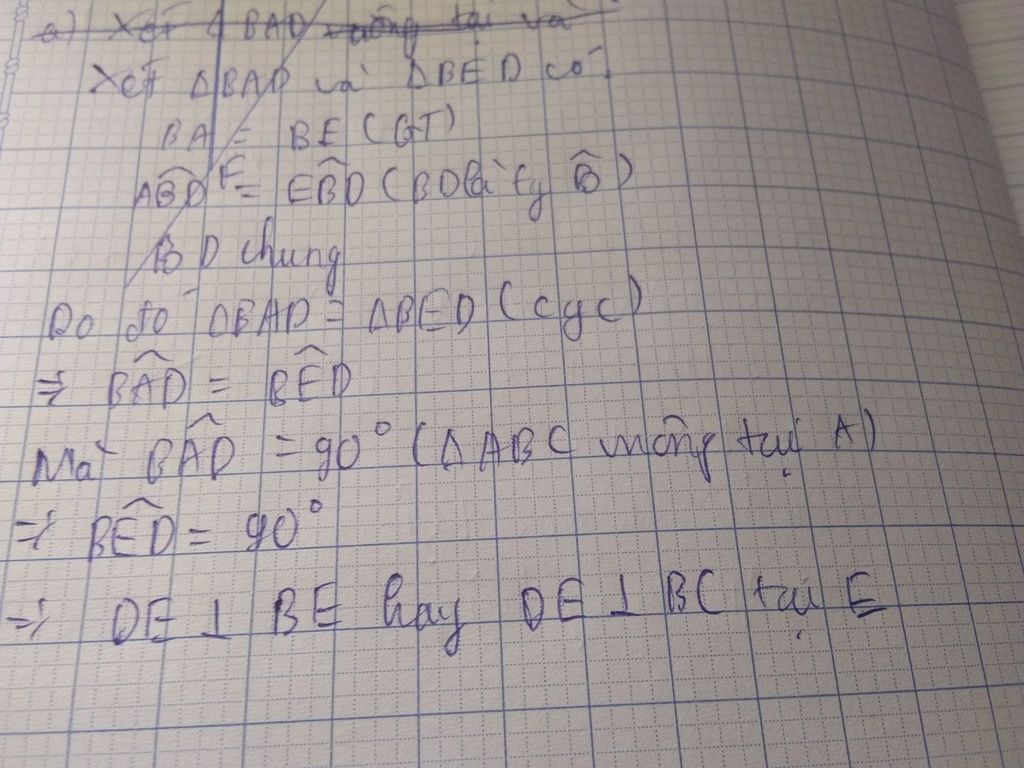 a) Xét Δ BAD vuông tại và
Xét ΔBAD và ΔBED có
BA = BE (GT)
ABD = EBD (BD là fg B)
BD chung
Do đó ΔBAD = ΔBED (cgc)
=> BAD = BED
Mà BAD = 90° (ΔABC vuông tại A)
=> BED = 90°
=> DE ⊥ BE hay DE ⊥ BC tại E